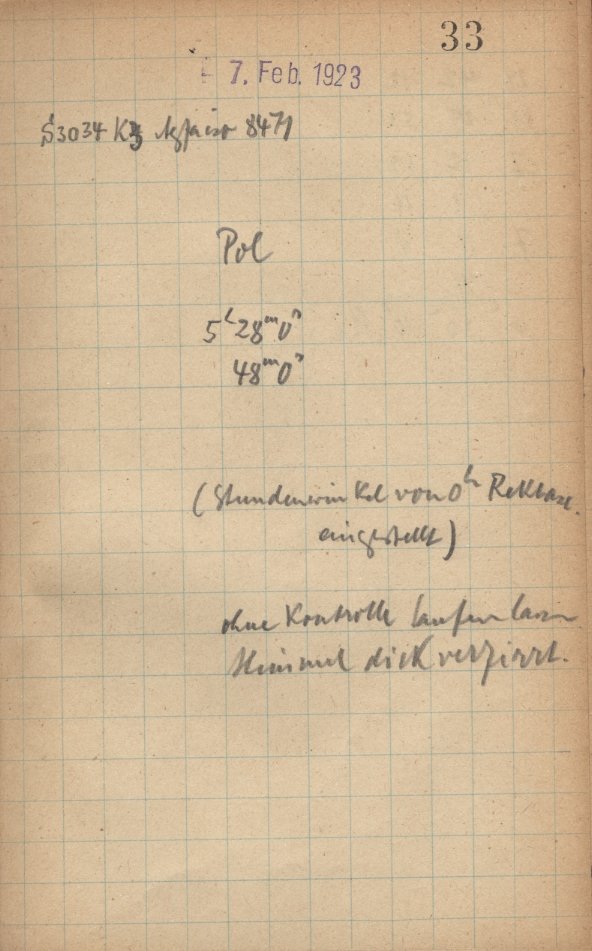 33
7. Feb. 1923
S3034 Kz Agfaiso 8471
Pol
5ʰ28ᵐ0ˢ
48ᵐ0ˢ
(Stundenwinkel von 0ʰ Rektasz.
eingestellt)
ohne Kontrolle laufen lassen
Himmel dick verzirrt.